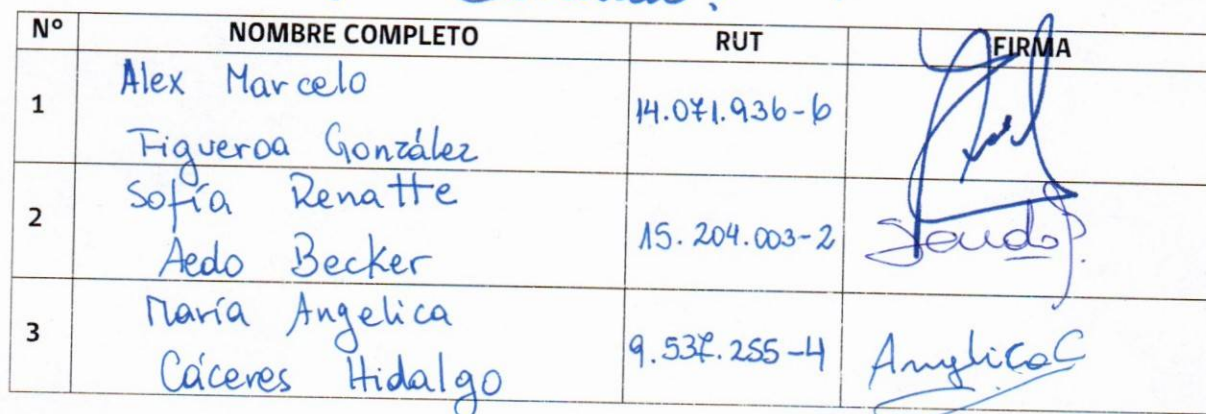 N° NOMBRE COMPLETO RUT FIRMA
1 Alex Marcelo
Figueroa González 14.071.936-6
2 Sofía Renatte
Aedo Becker 15.204.003-2
3 María Angelica
Cáceres Hidalgo 9.537.255-4 AngelicaC